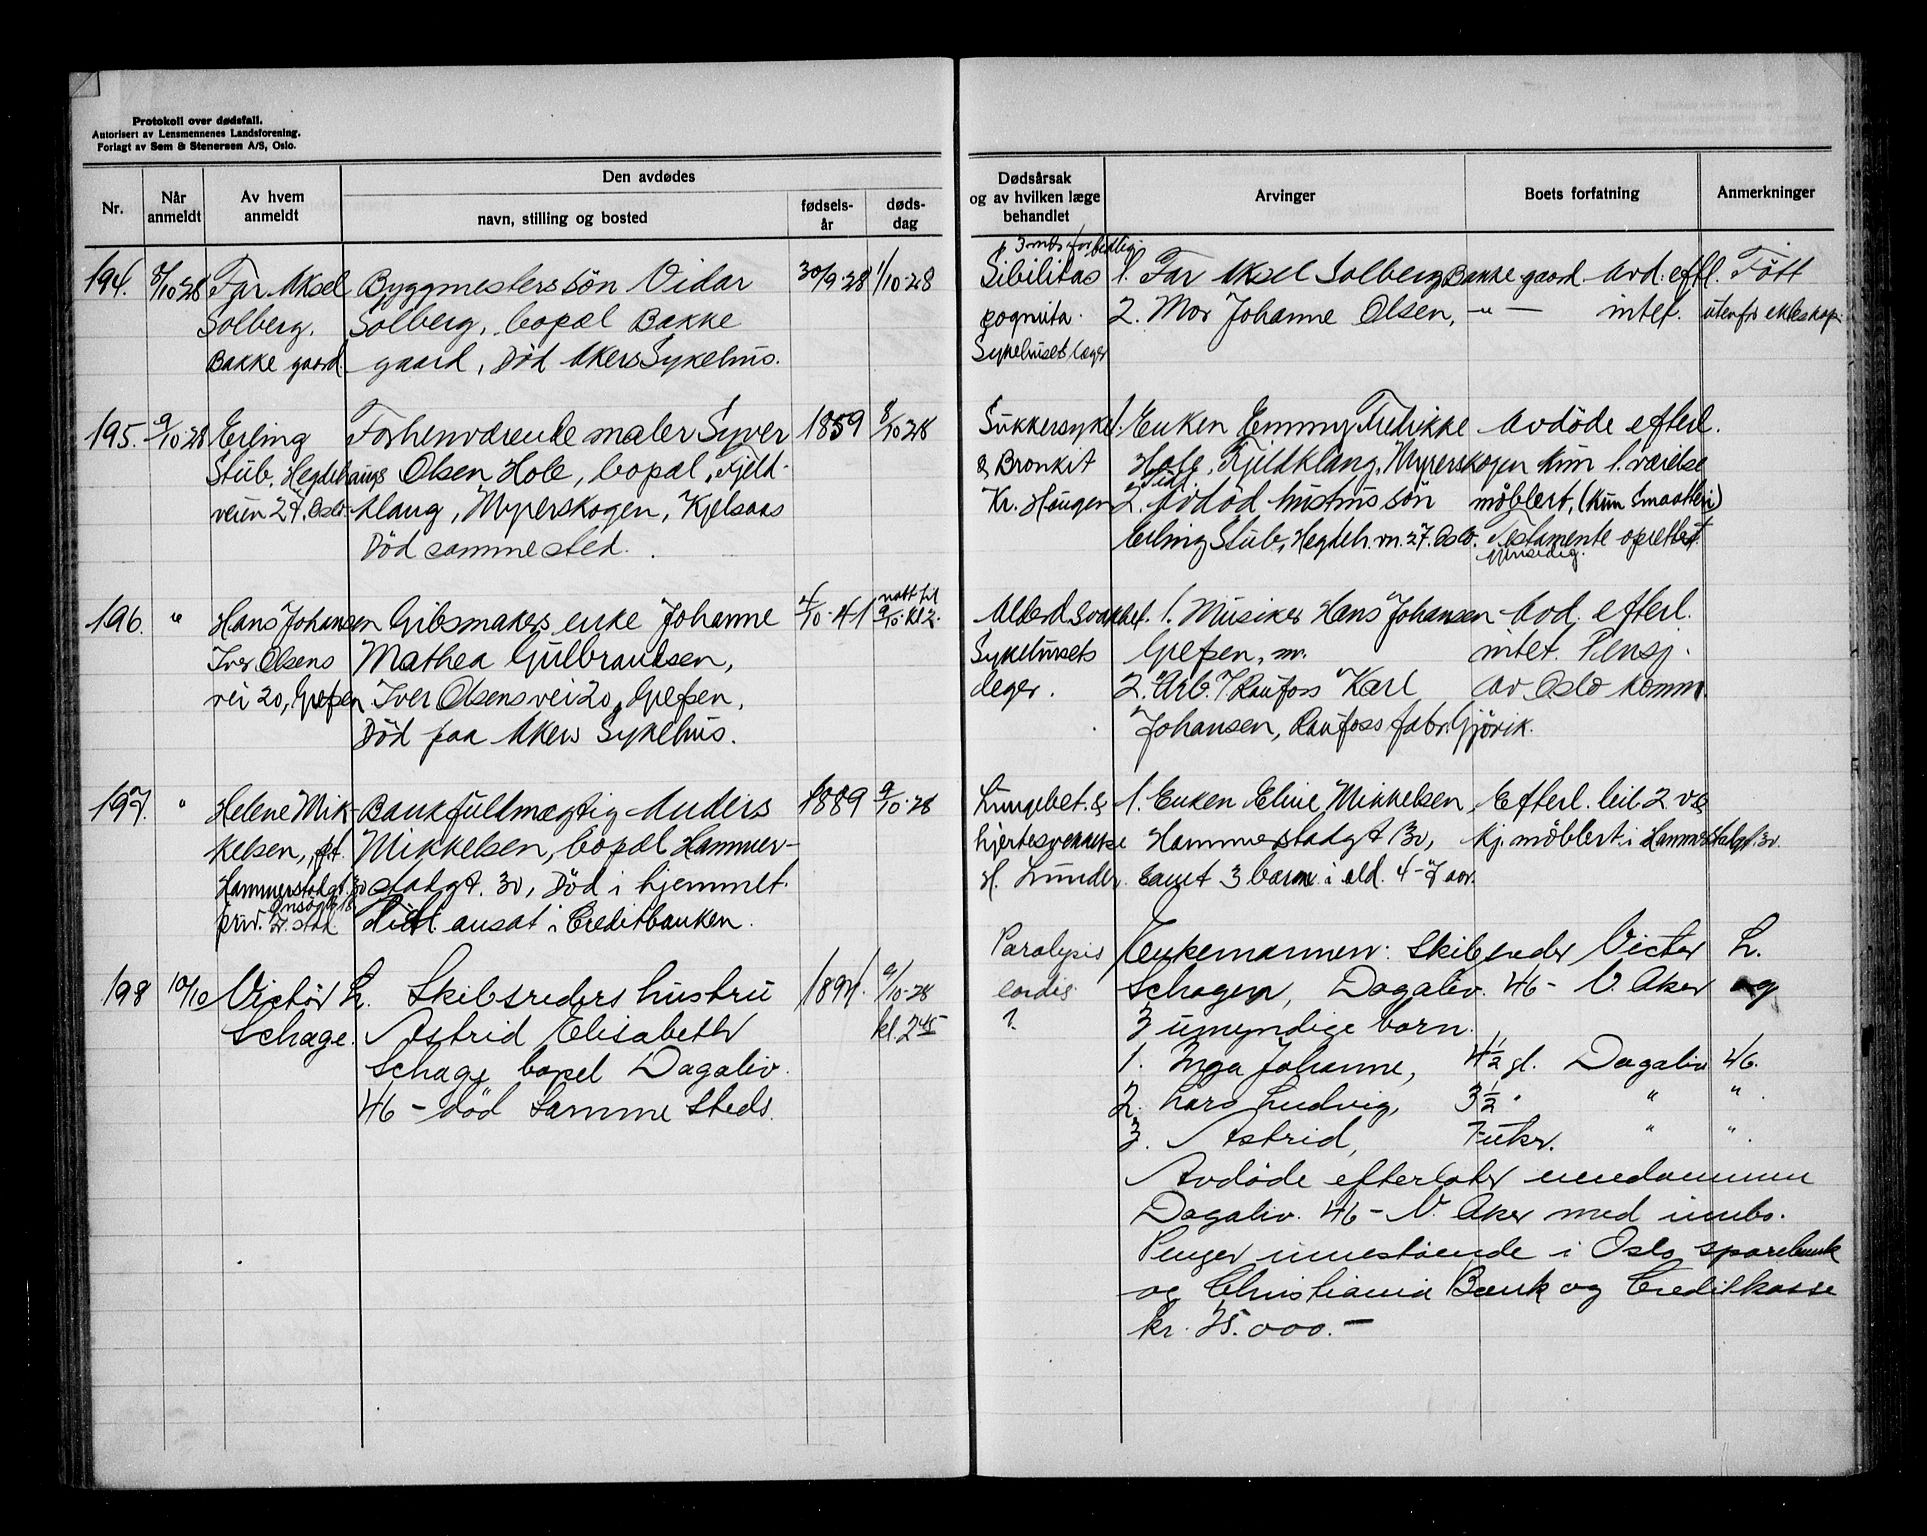 Protokoll over dødsfall.
Autorisert av Lensmennenes Landsforening.
Forlagt av Sem & Stenersen A/S, Oslo.
Nr.
Når anmeldt
Av hvem anmeldt
Den avdødes
navn, stilling og bosted
fødsels-år
døds-dag
Dødsårsak
og av hvilken læge
behandlet
Arvinger
Boets forfatning
Anmerkninger
194. 8/10-28 Far Aksel Byggmesters sön Vidar 30/9-28 1/10-28
Solberg. Solberg, bopæl Bakke
Bakke gaard. gaard, Död Akers Sykehus.
195. 9/10-28 Erling Forhenværende maler Syver 1859 8/10-28
Stub, Hegdehaugs Olsen Hole, bopæl, Fjeld-
veien 27. Oslo. klang, Myrerskogen, Kjelsaas
Död sammested.
196. " Hans Johansen Gibsmakers enke Johanne 4/10-41 natt til 9/10. kl 2.
Iver Olsens Mathea Gulbrandsen,
vei 20, Grefsen Iver Olsens vei 20, Grefsen,
Död paa Akers Sykehus.
197. " Helene Mik- Bankfuldmægtig Anders 1889 9/10-28
kelsen, Mikkelsen, bopæl Hammer-
Hammerstadgt. 30 stadgt. 30, Död i hjemmet.
priv. ansat i Creditbanken.
198 10/10 Victor L. Skibsreders hustru 1894. 9/10-28
Schage. Astrid Elisabeth kl. 2 45
Schage bopel Dagaliv.
46 - död samme steds.
Sibilitas 1. Far Aksel Solberg Bakke gaard. Avd. eftl. Født
2. Mor Johanne Olsen, - " - intet. utenfor ekteskap.
Sykehusets læger
Sukkersyke 1. Enken Emmy Fredrikke Avdöde efterl.
& Bronkit Hole, Fjeldklang, Myrerskogen kun 1. værelse
Kr. Haugen 2. Avdöd hustrus sön möblert, (kun Smaatteri)
Erling Stub, Hegdeh. vn. 27. Oslo. Testamente oprettet
gjensidig.
Alderd. Svakhet. 1. Musiker Hans Johansen Avd. efterl.
Sykehusets Grefsen, intet. Pensj.
læger. 2. Arb. / Raufoss Karl av Oslo komm.
Johansen, Raufoss fabr. Gjövik.
Lungebet. & 1. Enken Eline Mikkelsen, Efterl. leil. 2 v &
hjertesvekkelse Hammerstadgt 30, kj. möblert i Hammerstadgt. 30.
H. Lunder. samt 3 barn i ald. 4-7 aar.
Paralysis Enkemannen: Skibsreder Victor L.
cordis Schagen, Dagaliv. 46 - V. Aker og
?. 3 umyndige barn.
1. Inga Johanne, 4½ gl. Dagaliv 46.
2. Lars Ludvig, 3½ " " "
3. Astrid, 7 uker. " "
Avdöde efterlater eiendommen
Dagaliv. 46 - V. Aker med innbo.
Penger innestående i Oslo sparebank
og Christiania Bank og Creditkasse
kr. 25.000.-